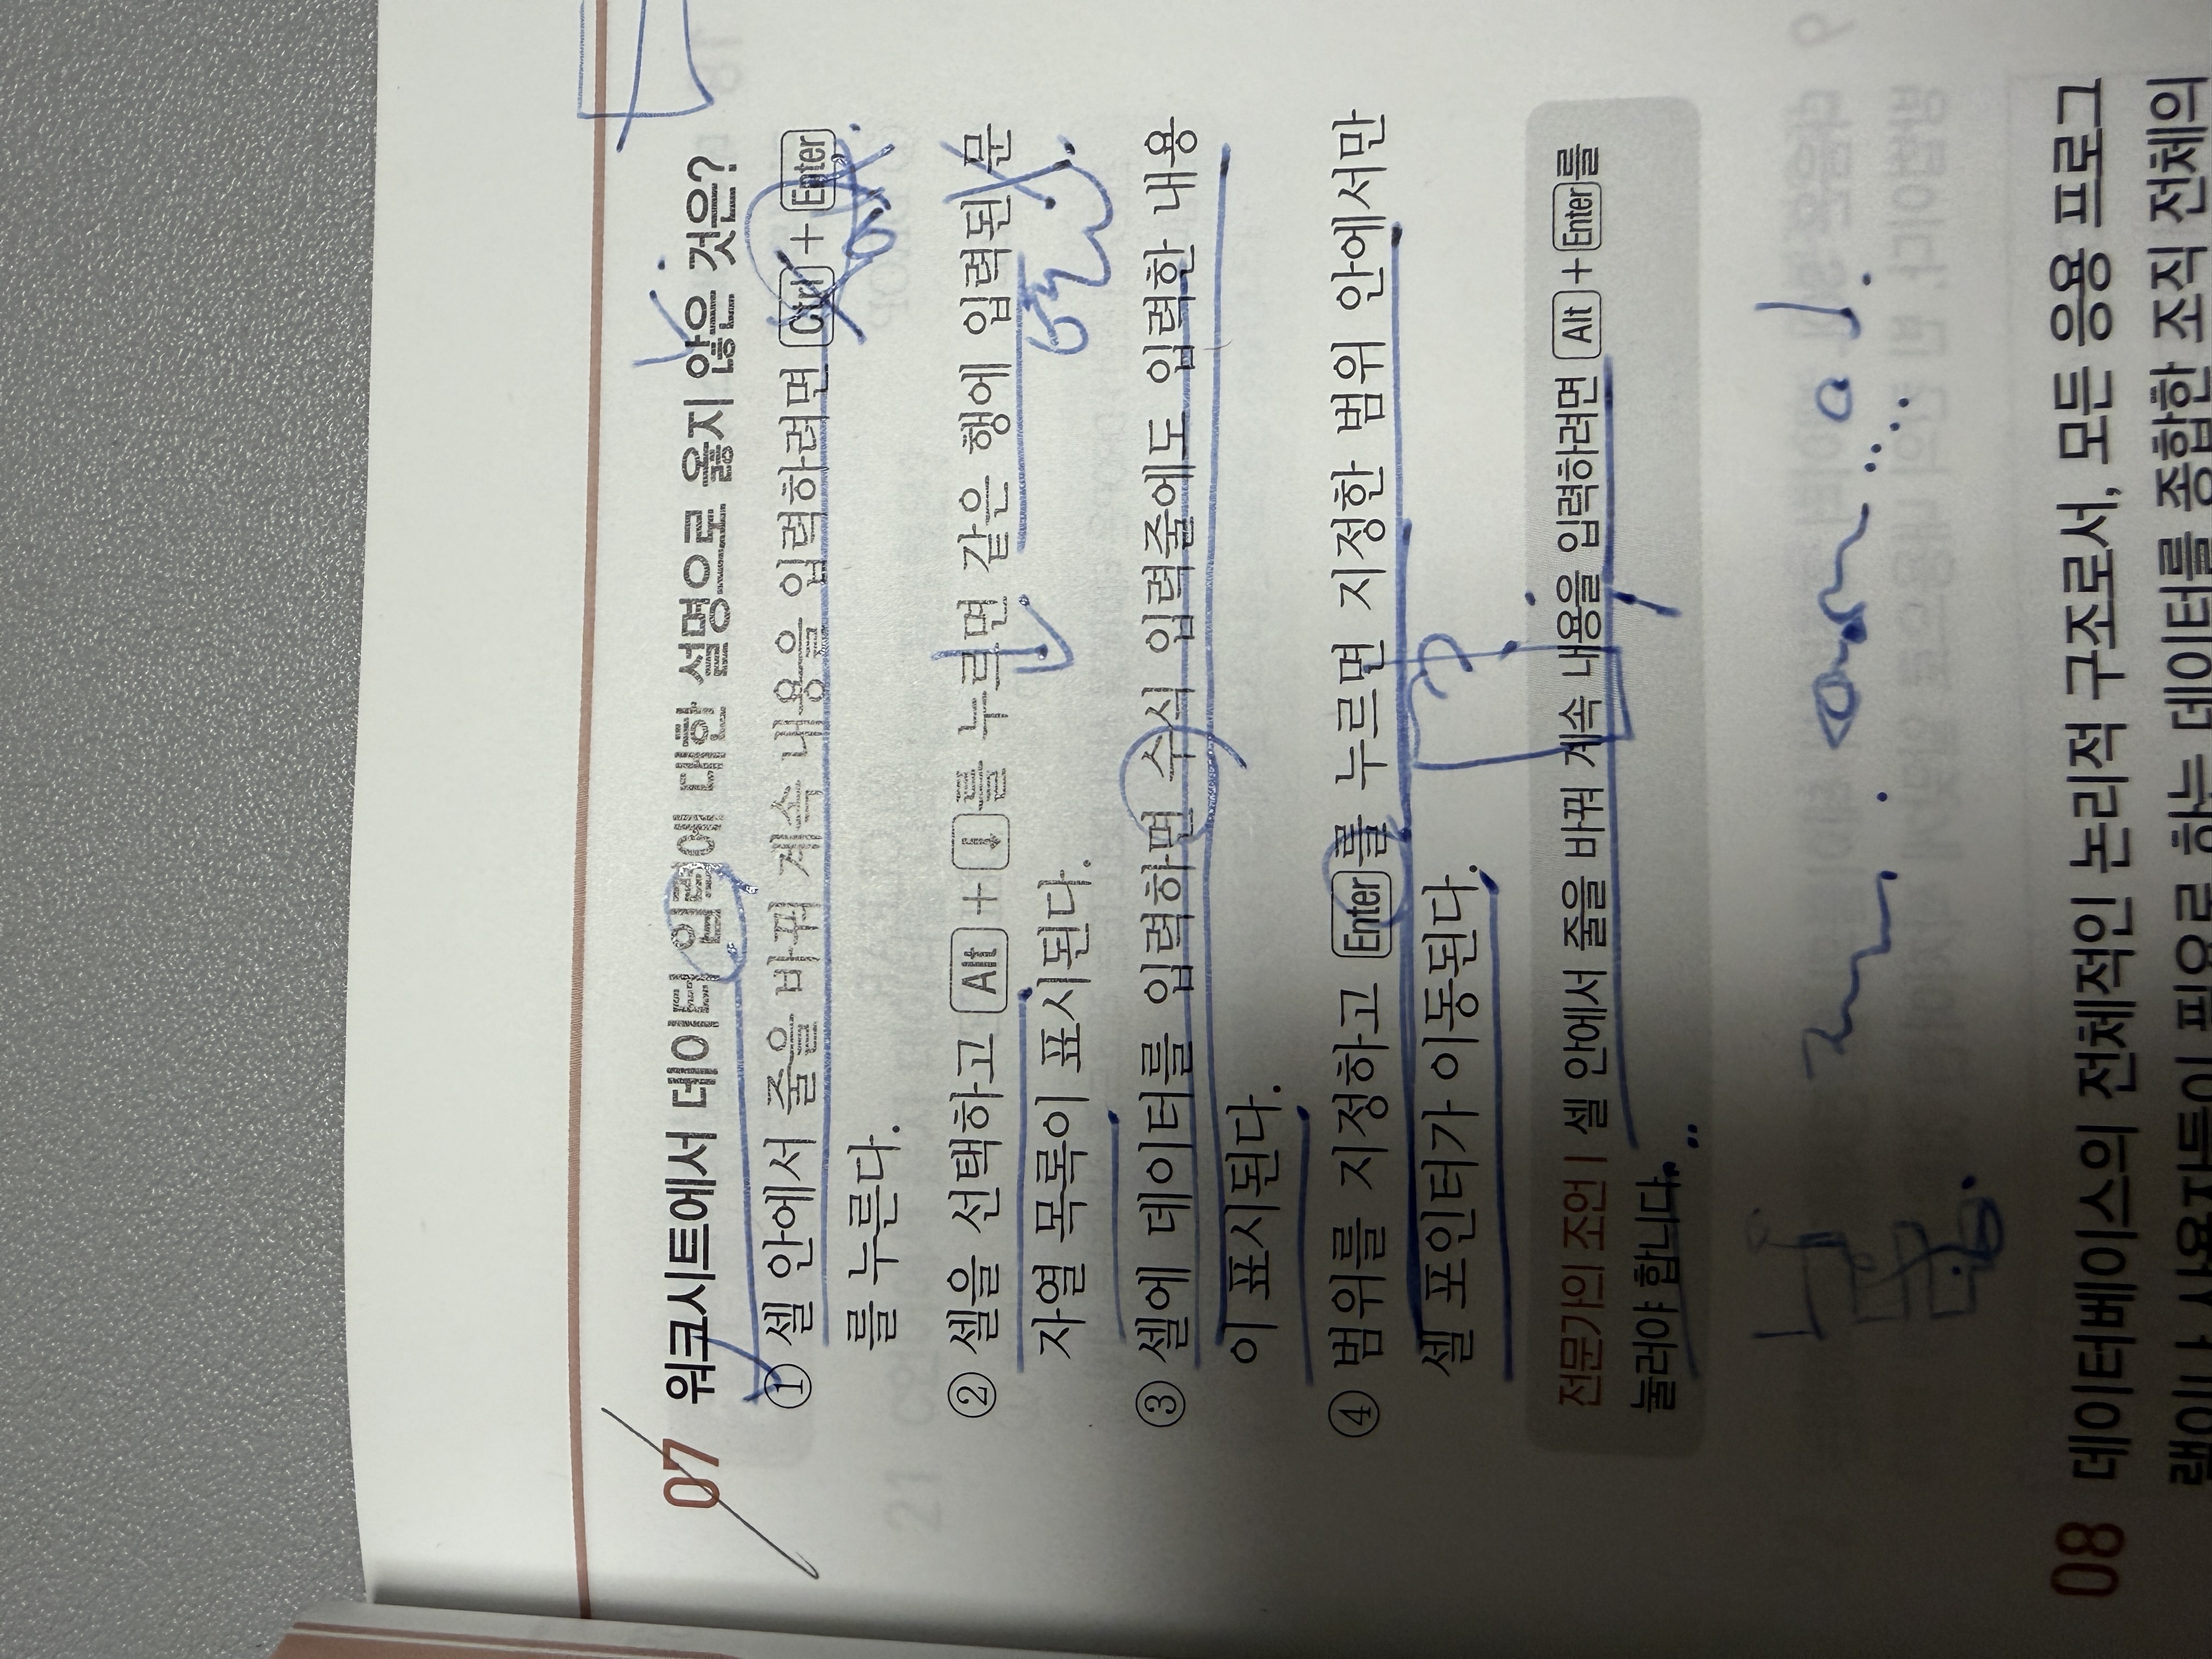 07 워크시트에서 데이터 입력에 대한 설명으로 옳지 않은 것은?
① 셀 안에서 줄을 바꿔 계속 내용을 입력하려면 Ctrl + Enter
를 누른다.
② 셀을 선택하고 Alt + ↓를 누르면 같은 행에 입력된 문
자열 목록이 표시된다.
③ 셀에 데이터를 입력하면 수식 입력줄에도 입력한 내용
이 표시된다.
④ 범위를 지정하고 Enter를 누르면 지정한 범위 안에서만
셀 포인터가 이동된다.
전문가의 조언 | 셀 안에서 줄을 바꿔 계속 내용을 입력하려면 Alt + Enter를
눌러야 합니다.
08 데이터베이스의 전체적인 논리적 구조로서, 모든 응용 프로그
램이나 사용자들이 필요로 하는 데이터를 종합한 조직 전체의